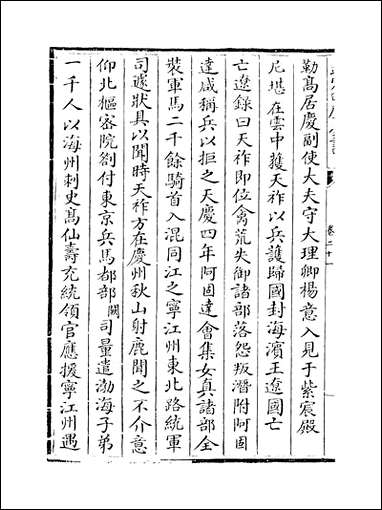 勒髙居慶副使大夫守大理卿楊意入見于紫宸殿
尼堪在雲中獲天祚以兵護歸國封海濱王遼國亡
亡遼録曰天祚即位禽荒失御諸部落怨叛潛附阿固
達咸稱兵以拒之天慶四年阿固達會集女真諸部全
裝軍馬二千餘騎首入混同江之寧江州東北路統軍
司遽狀具以聞時天祚方在慶州秋山射鹿聞之不介意
仰北樞密院劄付東京兵馬都部闕司量遣渤海子弟
一千人以海州刺史髙仙壽充統領官應援寧江州遇
卷二十一